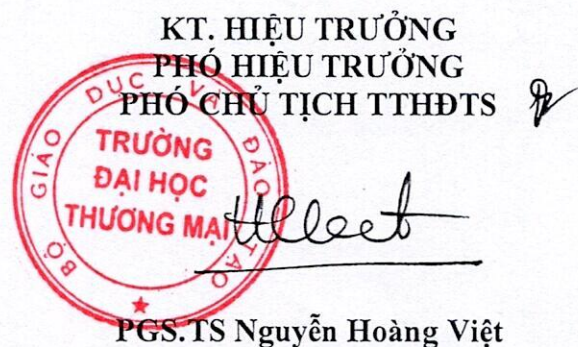 KT. HIỆU TRƯỞNG
PHÓ HIỆU TRƯỞNG
PHÓ CHỦ TỊCH TTHĐTS
BỘ GIÁO DỤC VÀ ĐÀO TẠO
TRƯỜNG
ĐẠI HỌC
THƯƠNG MẠI
PGS.TS Nguyễn Hoàng Việt